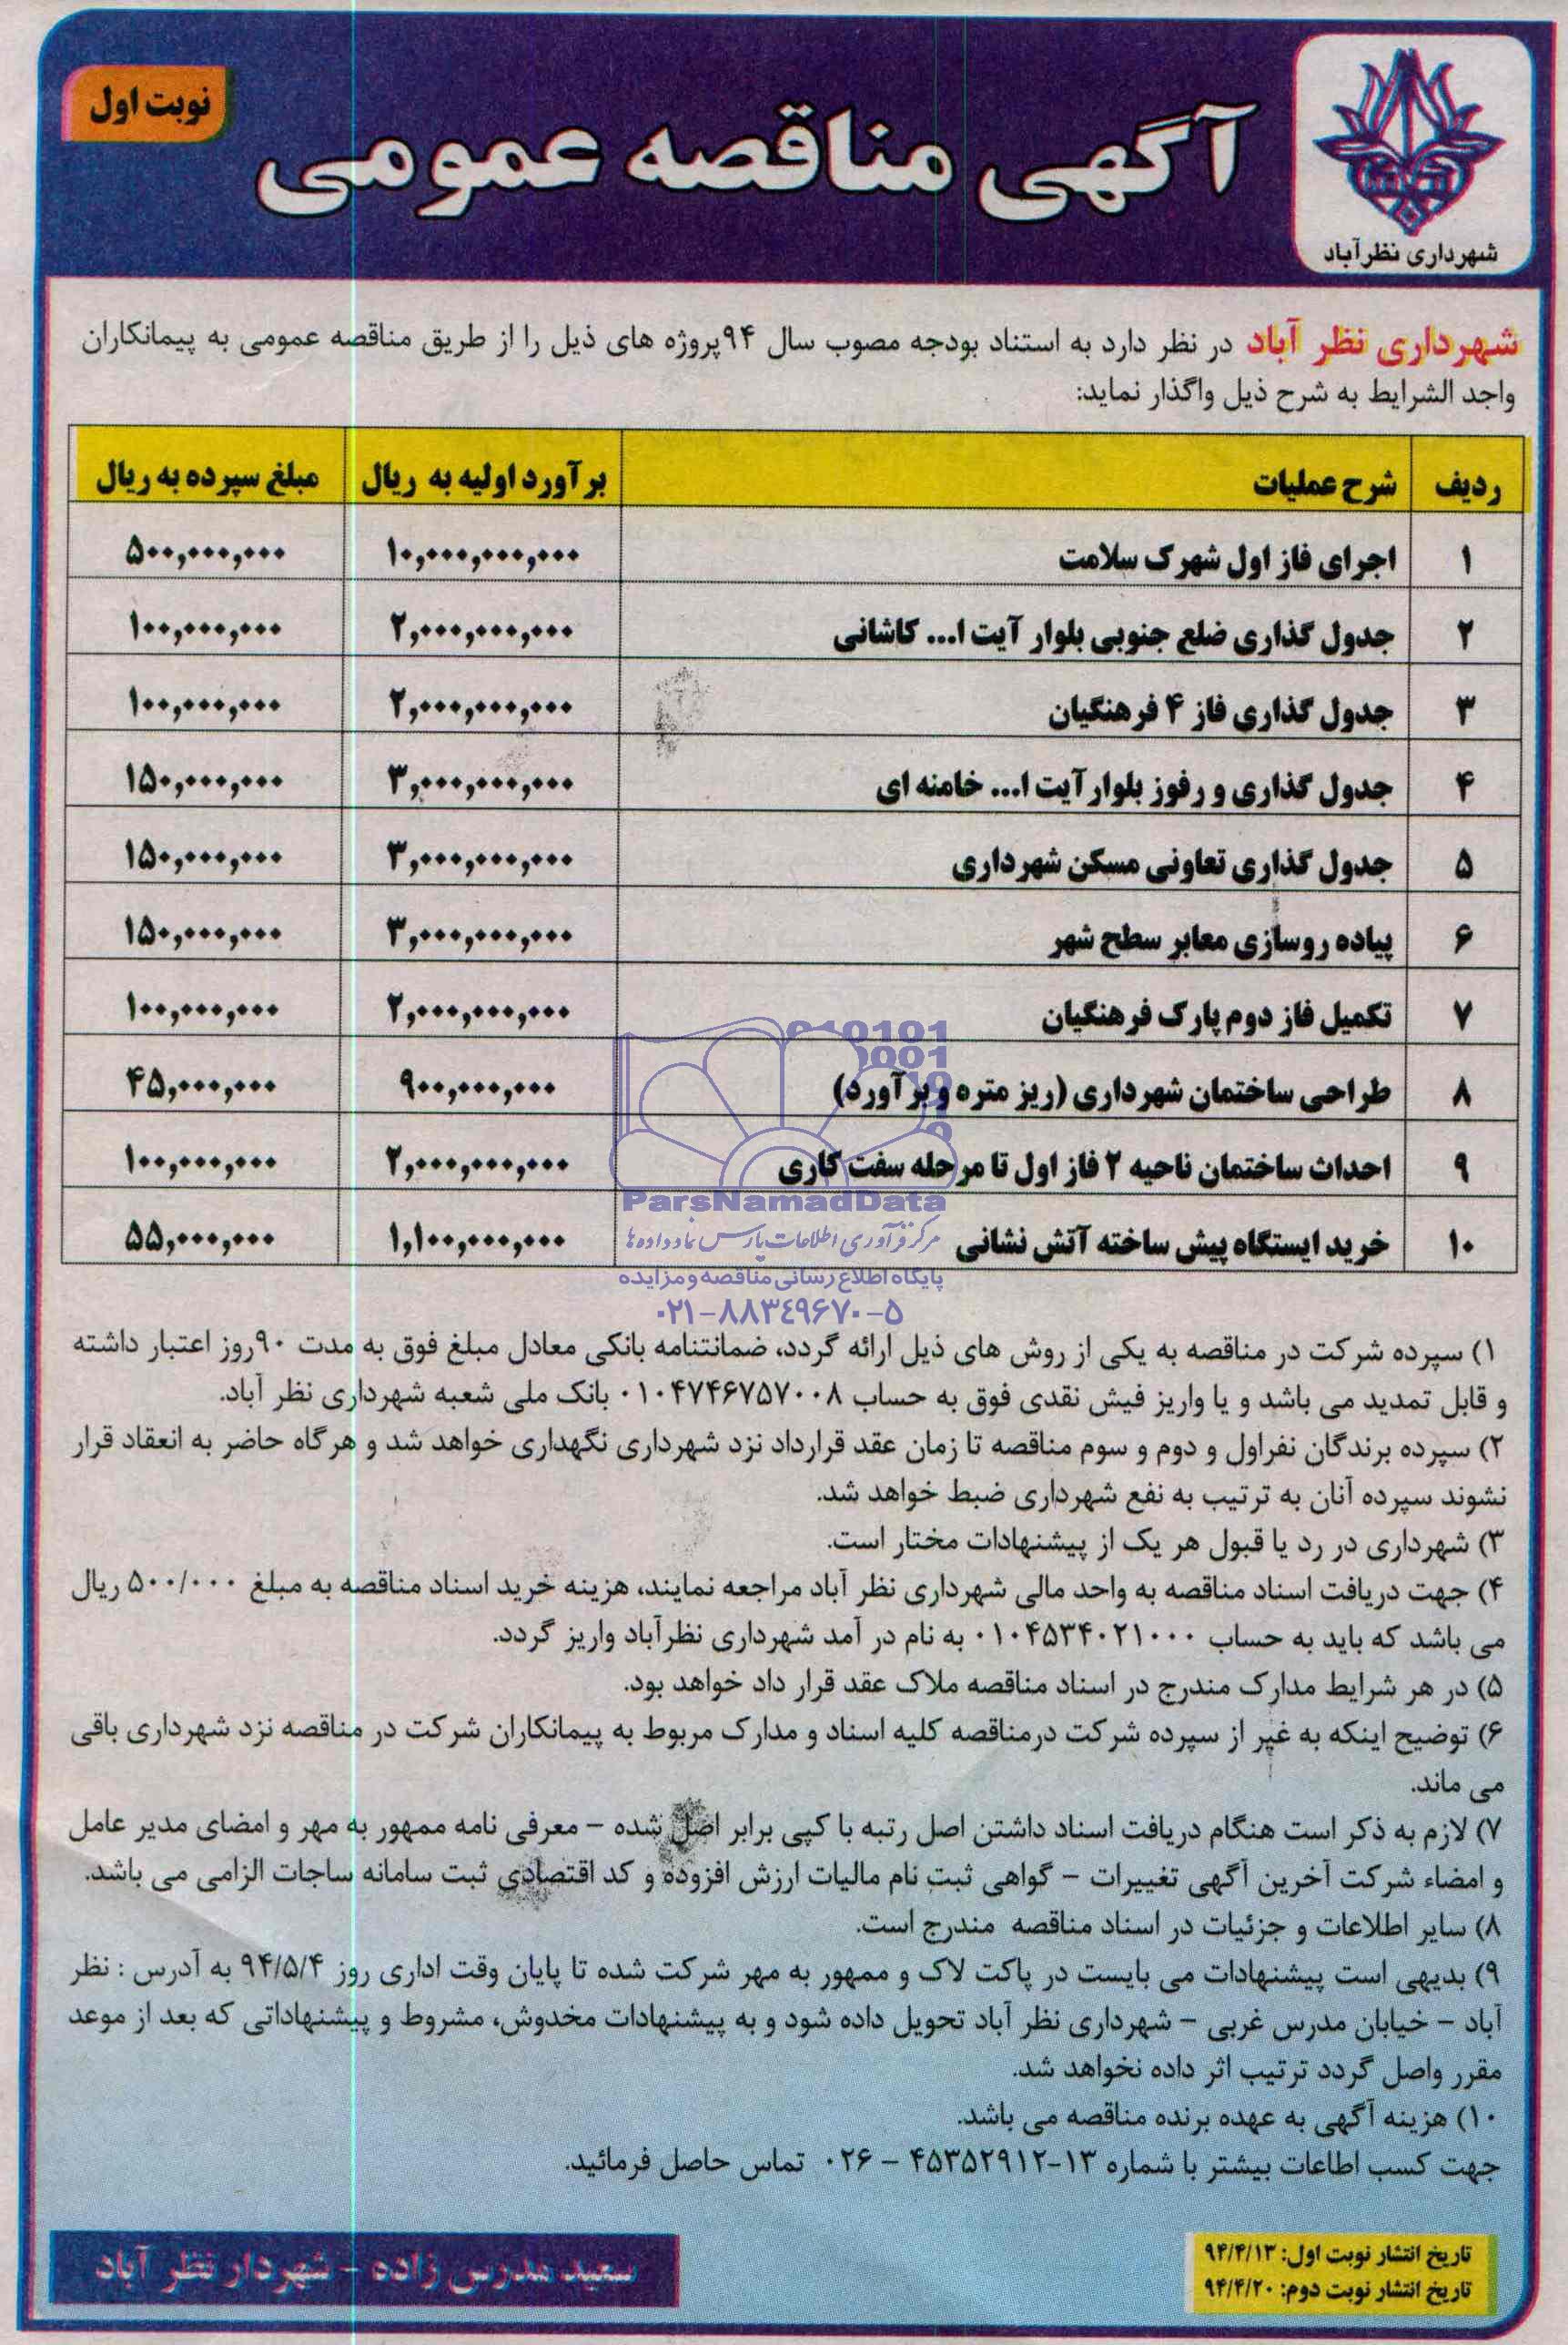 نوبت اول
آگهی مناقصه عمومی
شهرداری نظرآباد
شهرداری نظر آباد در نظر دارد به استناد بودجه مصوب سال ۹۴پروژه های ذیل را از طریق مناقصه عمومی به پیمانکاران
واجد الشرایط به شرح ذیل واگذار نماید:
ردیف شرح عملیات برآورد اولیه به ریال مبلغ سپرده به ریال
۱ اجرای فاز اول شهرک سلامت ۱۰,۰۰۰,۰۰۰,۰۰۰ ۵۰۰,۰۰۰,۰۰۰
۲ جدول گذاری ضلع جنوبی بلوار آیت ا... کاشانی ۲,۰۰۰,۰۰۰,۰۰۰ ۱۰۰,۰۰۰,۰۰۰
۳ جدول گذاری فاز ۴ فرهنگیان ۲,۰۰۰,۰۰۰,۰۰۰ ۱۰۰,۰۰۰,۰۰۰
۴ جدول گذاری و رفوز بلوار آیت ا... خامنه ای ۳,۰۰۰,۰۰۰,۰۰۰ ۱۵۰,۰۰۰,۰۰۰
۵ جدول گذاری تعاونی مسکن شهرداری ۳,۰۰۰,۰۰۰,۰۰۰ ۱۵۰,۰۰۰,۰۰۰
۶ پیاده روسازی معابر سطح شهر ۳,۰۰۰,۰۰۰,۰۰۰ ۱۵۰,۰۰۰,۰۰۰
۷ تکمیل فاز دوم پارک فرهنگیان ۲,۰۰۰,۰۰۰,۰۰۰ ۱۰۰,۰۰۰,۰۰۰
۸ طراحی ساختمان شهرداری (ریز متره و برآورد) ۹۰۰,۰۰۰,۰۰۰ ۴۵,۰۰۰,۰۰۰
۹ احداث ساختمان ناحیه ۲ فاز اول تا مرحله سفت کاری ۲,۰۰۰,۰۰۰,۰۰۰ ۱۰۰,۰۰۰,۰۰۰
۱۰ خرید ایستگاه پیش ساخته آتش نشانی ۱,۱۰۰,۰۰۰,۰۰۰ ۵۵,۰۰۰,۰۰۰
ParsNamadData
مرکز فرآوری اطلاعات پارس نماد داده ها
پایگاه اطلاع رسانی مناقصه و مزایده
۰۲۱-۸۸۳۴۹۶۷۰-۵
۱) سپرده شرکت در مناقصه به یکی از روش های ذیل ارائه گردد، ضمانتنامه بانکی معادل مبلغ فوق به مدت ۹۰روز اعتبار داشته
و قابل تمدید می باشد و یا واریز فیش نقدی فوق به حساب ۰۱۰۴۷۴۶۷۵۷۰۰۸ بانک ملی شعبه شهرداری نظر آباد.
۲) سپرده برندگان نفراول و دوم و سوم مناقصه تا زمان عقد قرارداد نزد شهرداری نگهداری خواهد شد و هرگاه حاضر به انعقاد قرار
نشوند سپرده آنان به ترتیب به نفع شهرداری ضبط خواهد شد.
۳) شهرداری در رد یا قبول هر یک از پیشنهادات مختار است.
۴) جهت دریافت اسناد مناقصه به واحد مالی شهرداری نظر آباد مراجعه نمایند، هزینه خرید اسناد مناقصه به مبلغ ۵۰۰/۰۰۰ ریال
می باشد که باید به حساب ۰۱۰۴۵۳۴۰۲۱۰۰۰ به نام در آمد شهرداری نظرآباد واریز گردد.
۵) در هر شرایط مدارک مندرج در اسناد مناقصه ملاک عقد قرار داد خواهد بود.
۶) توضیح اینکه به غیر از سپرده شرکت درمناقصه کلیه اسناد و مدارک مربوط به پیمانکاران شرکت در مناقصه نزد شهرداری باقی
می ماند.
۷) لازم به ذکر است هنگام دریافت اسناد داشتن اصل رتبه با کپی برابر اصل شده – معرفی نامه ممهور به مهر و امضای مدیر عامل
و امضاء شرکت آخرین آگهی تغییرات – گواهی ثبت نام مالیات ارزش افزوده و کد اقتصادی ثبت سامانه ساجات الزامی می باشد.
۸) سایر اطلاعات و جزئیات در اسناد مناقصه مندرج است.
۹) بدیهی است پیشنهادات می بایست در پاکت لاک و ممهور به مهر شرکت شده تا پایان وقت اداری روز ۹۴/۵/۴ به آدرس : نظر
آباد – خیابان مدرس غربی – شهرداری نظر آباد تحویل داده شود و به پیشنهادات مخدوش، مشروط و پیشنهاداتی که بعد از موعد
مقرر واصل گردد ترتیب اثر داده نخواهد شد.
۱۰) هزینه آگهی به عهده برنده مناقصه می باشد.
جهت کسب اطاعات بیشتر با شماره ۱۳-۴۵۳۵۲۹۱۲ – ۰۲۶ تماس حاصل فرمائید.
تاریخ انتشار نوبت اول: ۹۴/۴/۱۳
تاریخ انتشار نوبت دوم: ۹۴/۴/۲۰
سعید مدرس زاده – شهردار نظر آباد